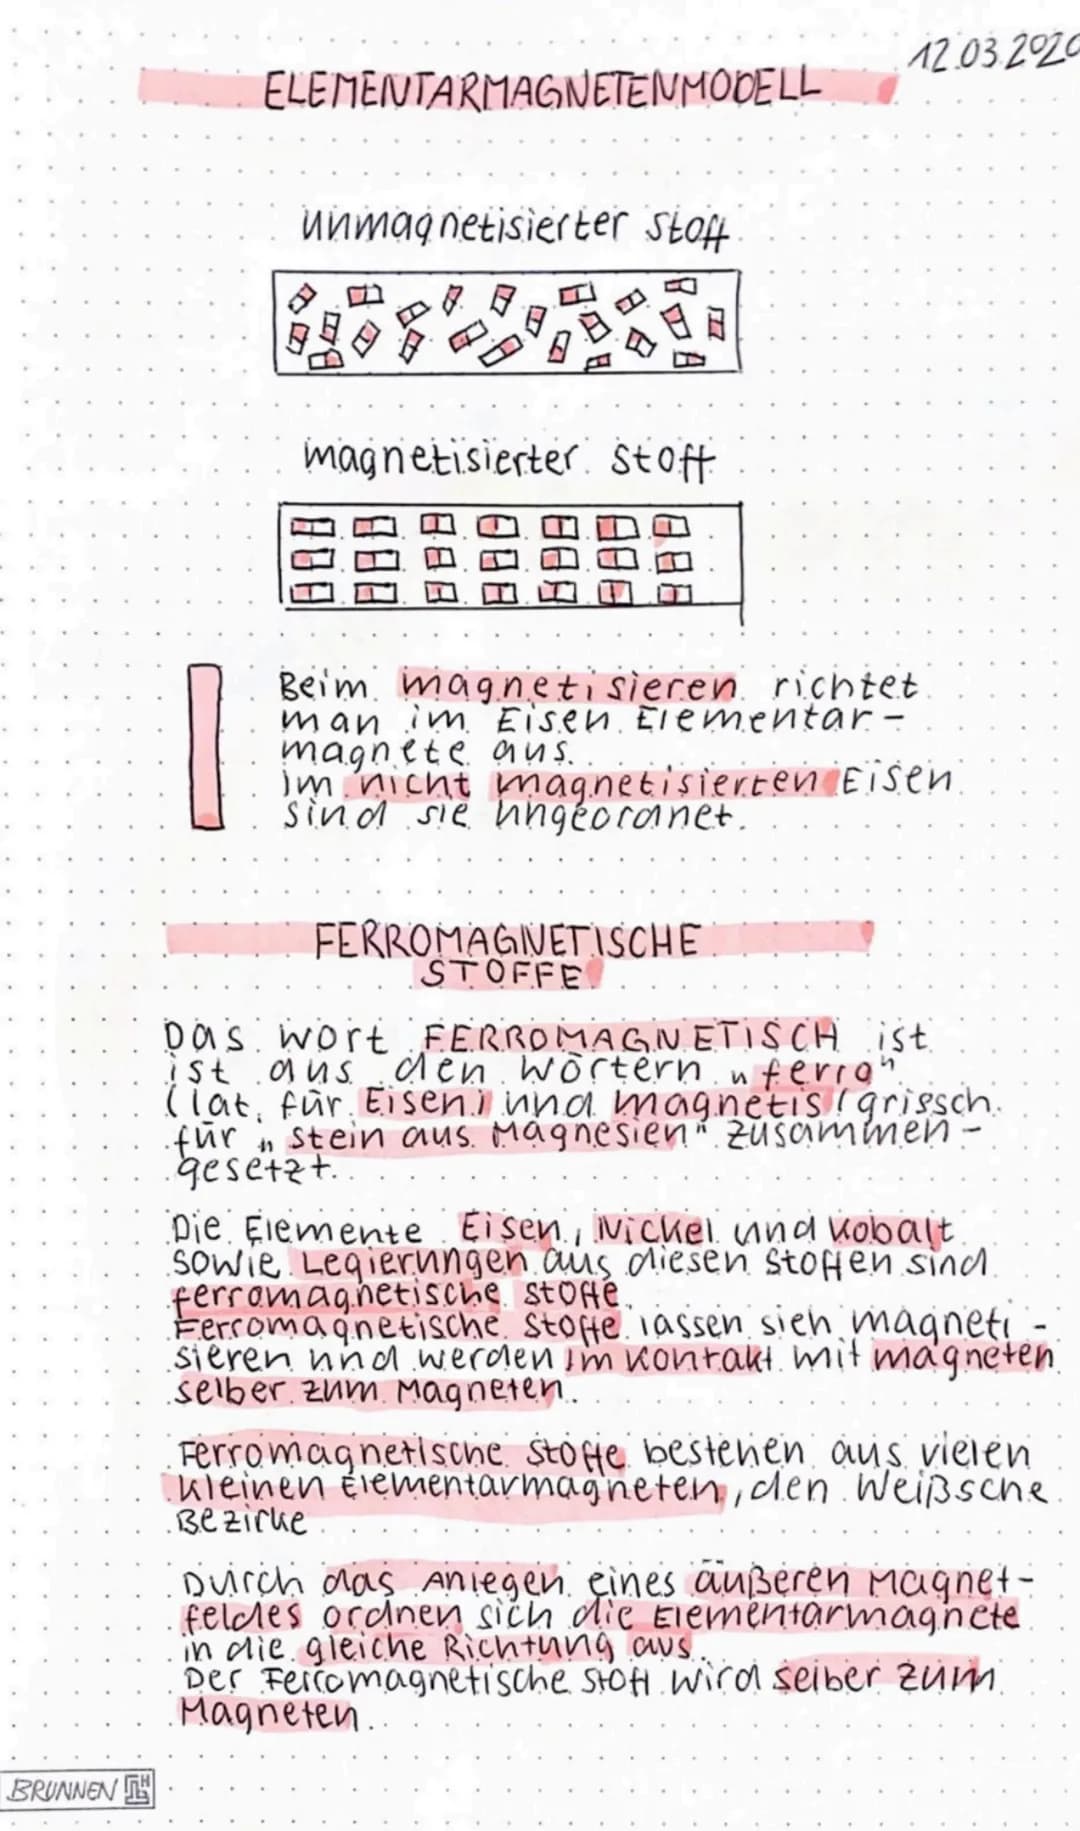 12.03.2020
ELEMENTARMAGNETENMODELL
unmagnetisierter Stoff
magnetisierter Stoff
Beim magnetisieren richtet
man im Eisen Elementar-
magnete aus.
im nicht magnetisierten Eisen
sind sie ungeordnet.
FERROMAGNETISCHE
STOFFE
Das Wort FERROMAGNETISCH ist
ist aus den Wörtern „ferro"
(lat. für Eisen) und magnetis (grissch.
für „Stein aus Magnesien" zusammen-
gesetzt.
Die Elemente Eisen, Nickel und Kobalt
sowie Legierungen aus diesen Stoffen sind
ferromagnetische Stoffe.
Ferromagnetische Stoffe lassen sich magneti-
sieren und werden im Kontakt mit magneten
selber zum Magneten.
Ferromagnetische Stoffe bestehen aus vielen
kleinen Elementarmagneten, den Weißsche
Bezirke
Durch das Anlegen eines äußeren Magnet-
feldes ordnen sich die Elementarmagnete
in die gleiche Richtung aus.
Der Ferromagnetische Stoff wird selber zum
Magneten.
BRUNNEN